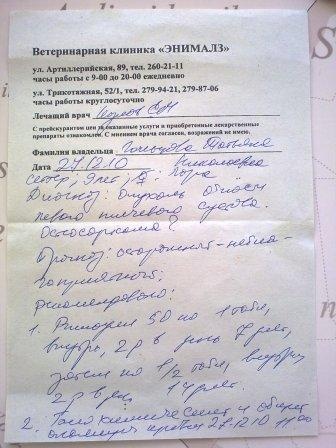 Ветеринарная клиника «ЭНИМАЛЗ»
ул. Артиллерийская, 89, тел. 260-21-11
часы работы с 9-00 до 20-00 ежедневно
ул. Трикотажная, 52/1, тел. 279-94-21, 279-87-06
часы работы круглосуточно
Лечащий врач
С прейскурантом цен за оказанные услуги и приобретенные лекарственные
препараты ознакомлен. С мнением врача согласен, возражений не имею.
Фамилия владельца Татьяна
Дата 24.12.10 Николаевна
сеттер; 9 лет;
Диагноз: Опухоль области
левого плечевого сустава.
Остеосаркома?
Прогноз: осторожный - небла-
гоприятный;
Рекомендовано:
1. Римадил 50 по 1 табл,
внутрь, 2 р в день 7 дней,
затем по 1/2 табл, внутрь,
2 р в день 14 дней.
2. крови 27.12.10 11 00